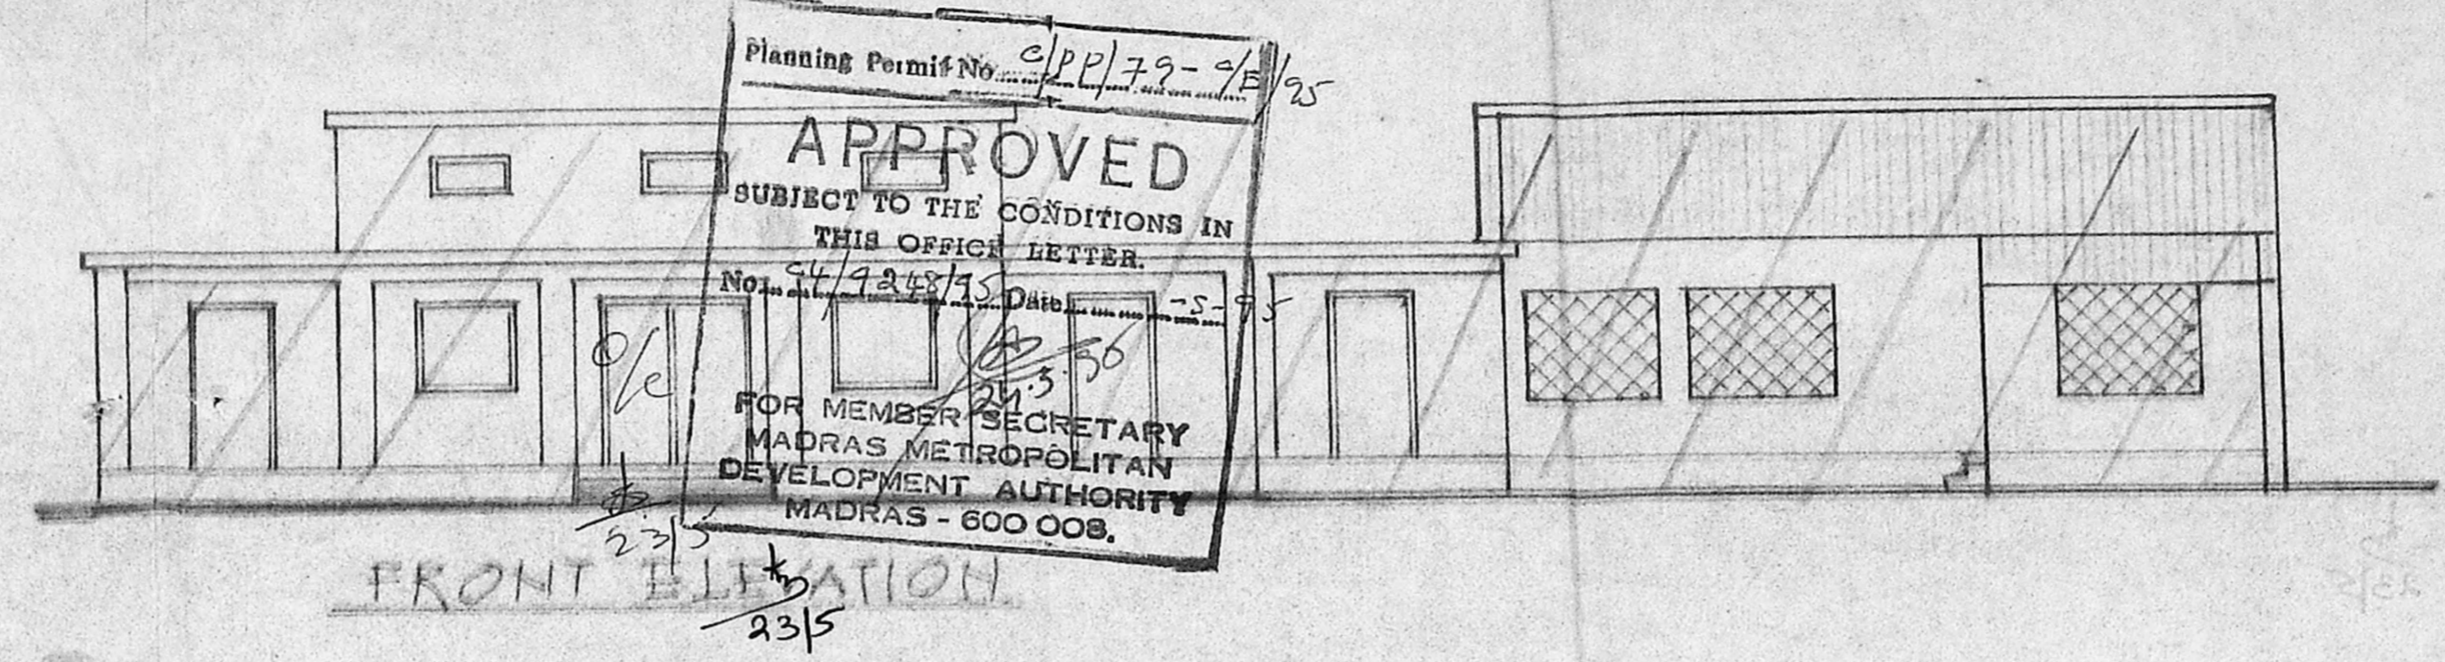 Planning Permit No. C/PP/79-C/E/95
APPROVED
SUBJECT TO THE CONDITIONS IN
THIS OFFICE LETTER.
No. C4/9248/95 Date -5-95
O/C
FOR MEMBER SECRETARY
MADRAS METROPOLITAN
DEVELOPMENT AUTHORITY
MADRAS - 600 008.
23/5
FRONT ELEVATION
23/5